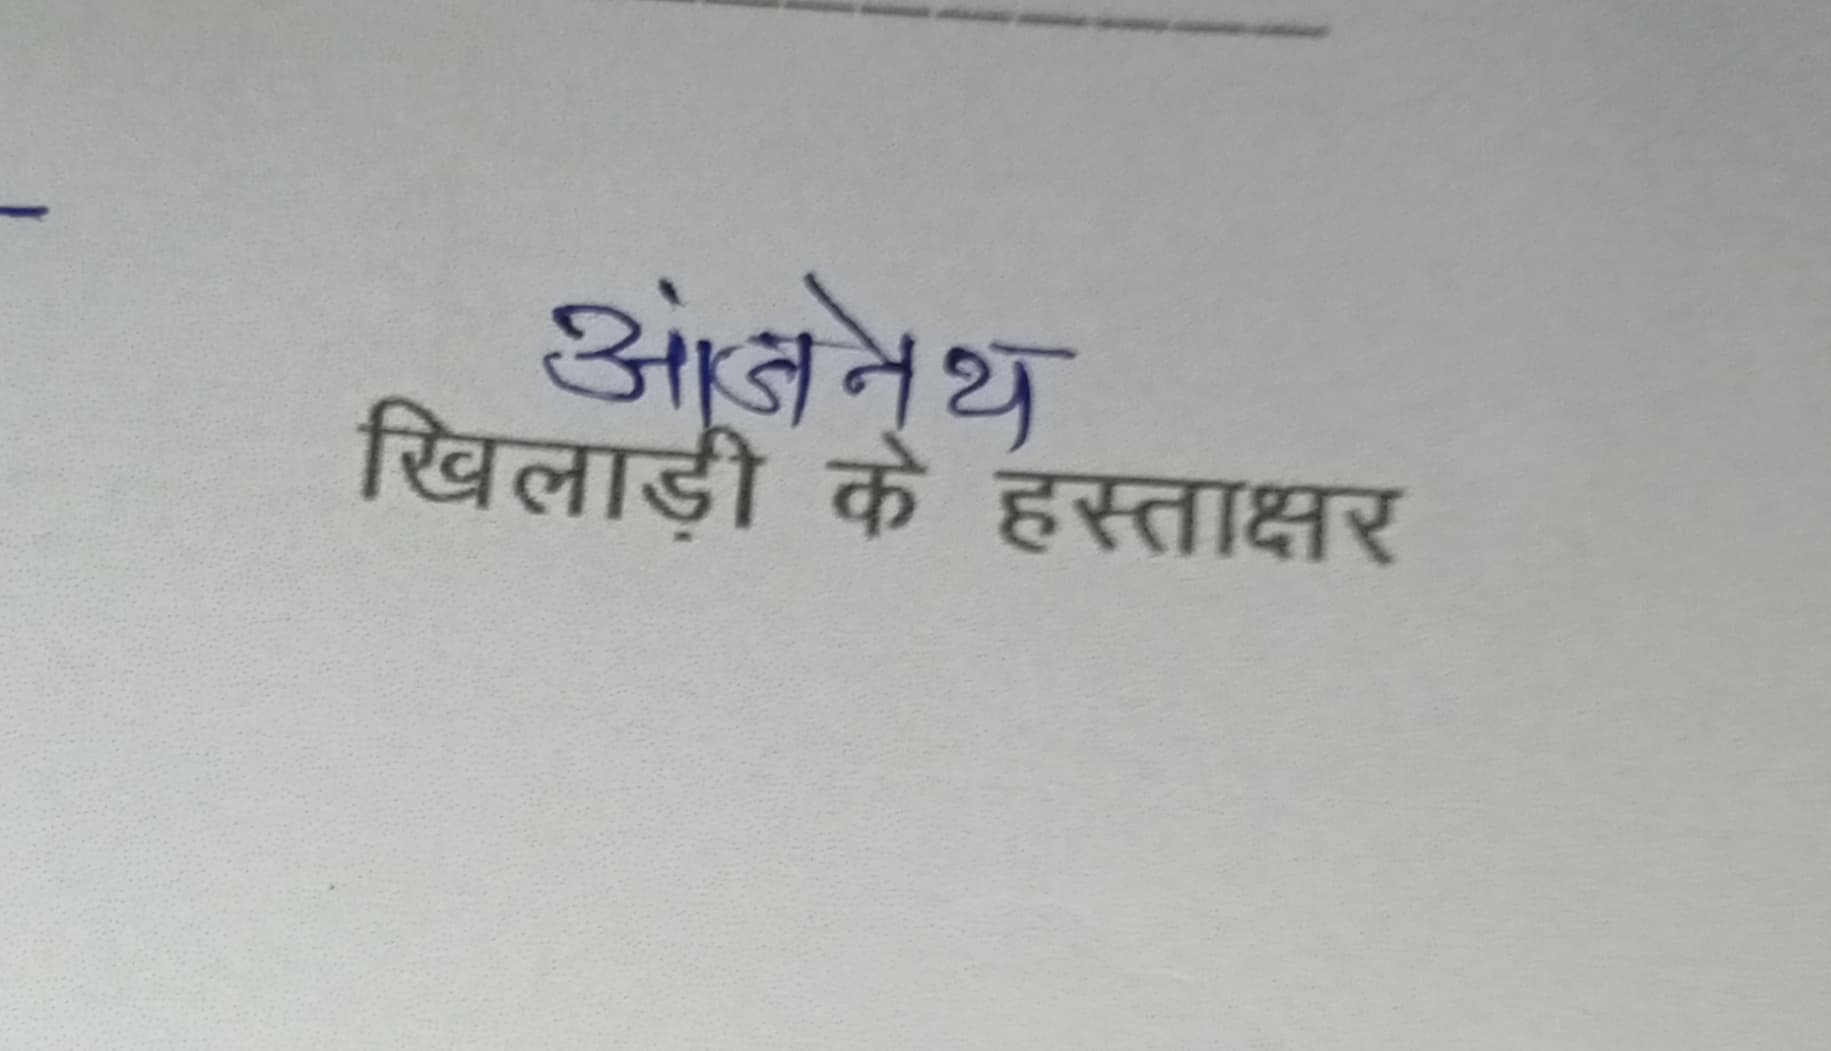 आंजनेय
खिलाड़ी के हस्ताक्षर